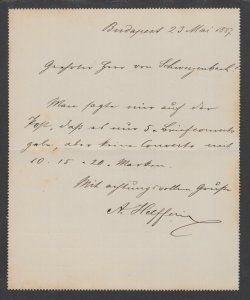 Budapest 23 Mai 1887
Geehrter Herr von Schwarzenbach!
Man sagte mir auf der
Post, daß es nur 5 Briefcouverts
gebe, aber keine Couverts mit
10 - 15 - 20 - Marken.
Mit achtungsvollem Gruße
A.